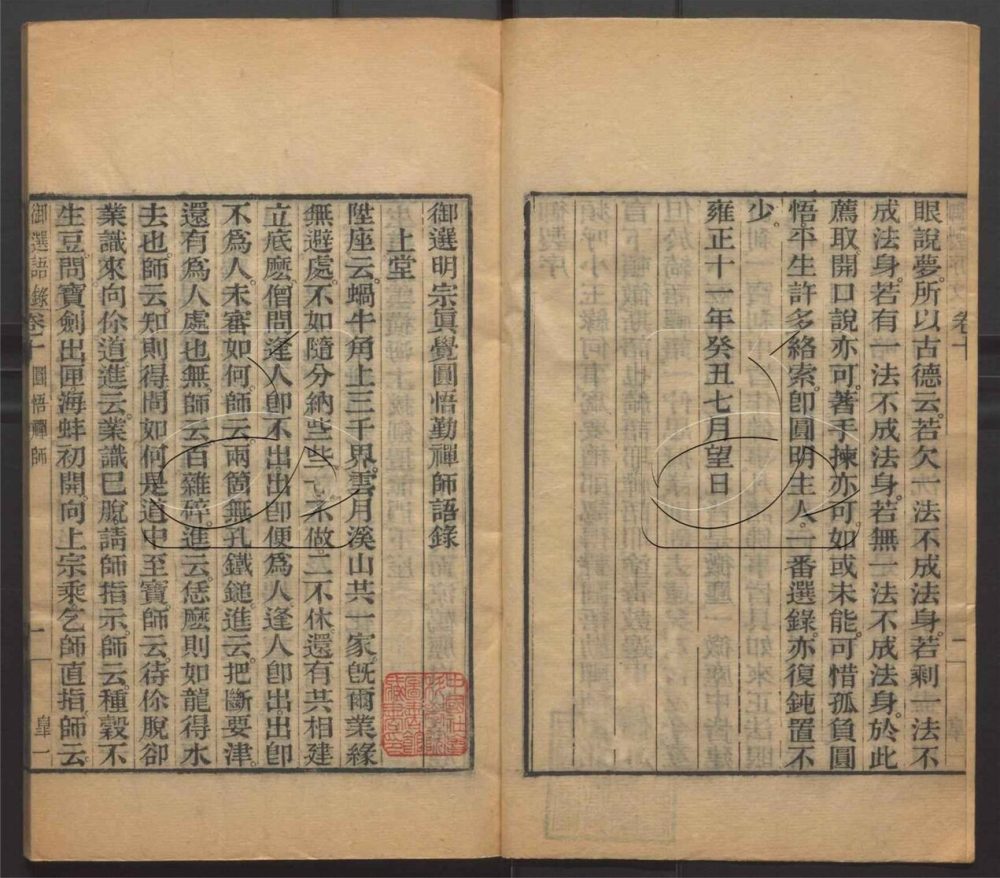 眼說夢。所以古德云。若欠一法不成法身。若剩一法不
成法身。若有一法不成法身。若無一法不成法身。於此
薦取。開口說亦可。著手揀亦可。如或未能。可惜孤負圓
悟平生許多絡索。卽圓明主人。一番選錄。亦復鈍置不
少。
雍正十一年癸丑七月望日
御選明宗眞覺圓悟勤禪師語錄
上堂
陞座云。蝸牛角上三千界。雲月溪山共一家。旣爾業緣
無避處。不如隨分納些些。一不做。二不休。還有共相建
立底麽。僧問。逢人卽不出。出卽便爲人。逢人卽出。出卽
不爲人。未審如何。師云。兩箇無孔鐵鎚。進云。把斷要津。
還有爲人處也無。師云。百雜碎。進云。恁麽則如龍得水
去也。師云。知則得。問。如何是道中至寶。師云。待你脫卻
業識來。向你道。進云。業識已脫。請師指示。師云。種穀不
生豆。問。寶劍出匣。海蚌初開。向上宗乘。乞師直指。師云。
御選語錄 卷十 圓悟禪師 一 皐一